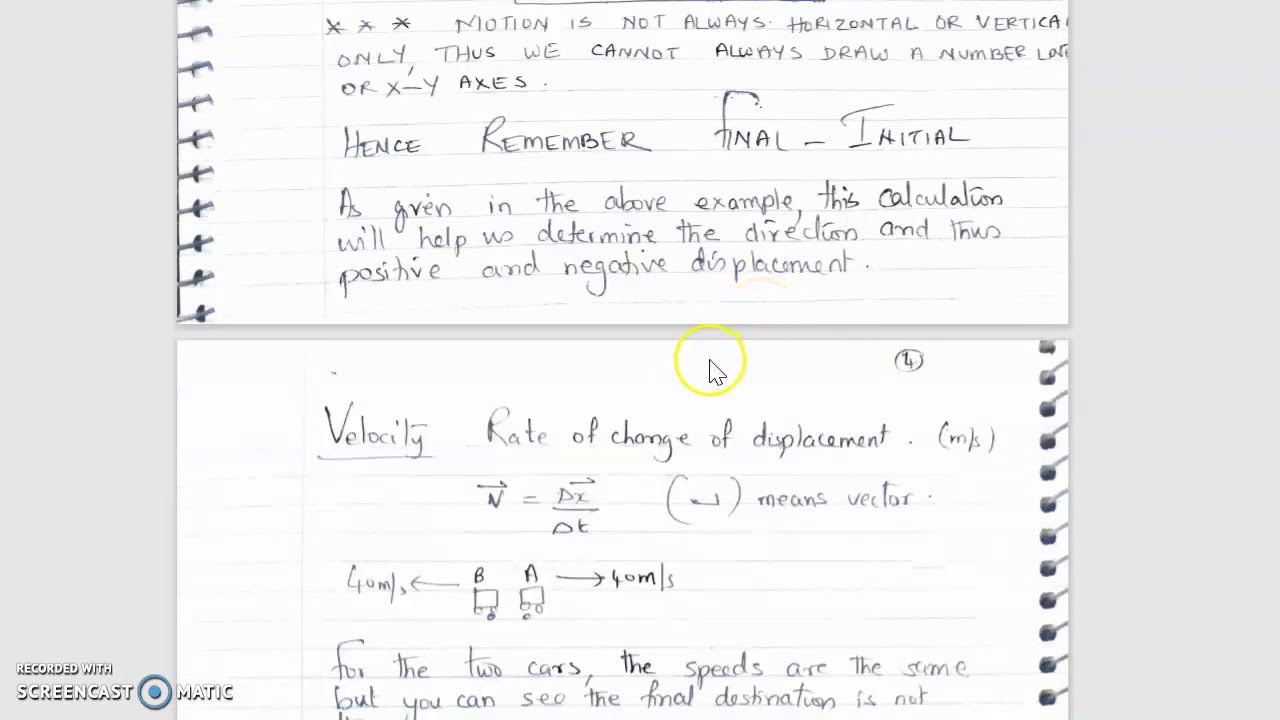 * * * MOTION IS NOT ALWAYS HORIZONTAL OR VERTICA
ONLY, THUS WE CANNOT ALWAYS DRAW A NUMBER LINE
OR X-Y AXES.
HENCE REMEMBER FINAL - INITIAL
As given in the above example, this calculation
will help us determine the direction and thus
positive and negative displacement.
4
Velocity Rate of change of displacement. (m/s)
V = Δx
Δt
( → ) means vector.
40m/s ← B A → 40m/s
For the two cars, the speeds are the same
but you can see the final destination is not
RECORDED WITH
SCREENCAST MATIC